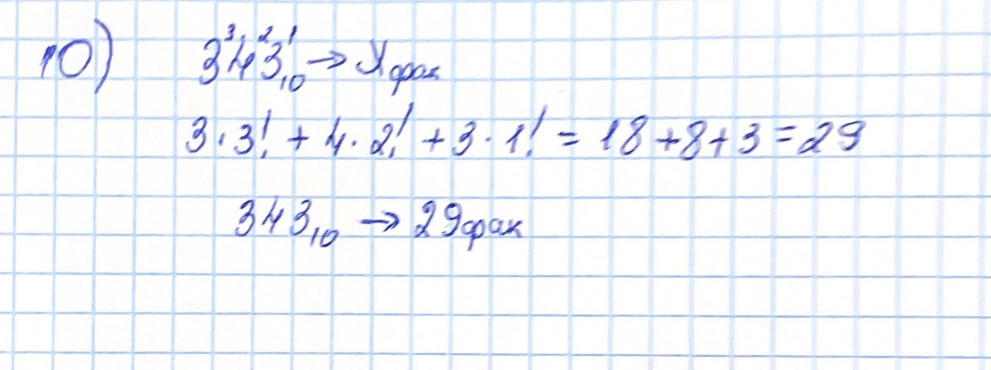 10) 3³4²3¹₁₀ → X фак
3 · 3! + 4 · 2! + 3 · 1! = 18 + 8 + 3 = 29
343₁₀ → 29фак